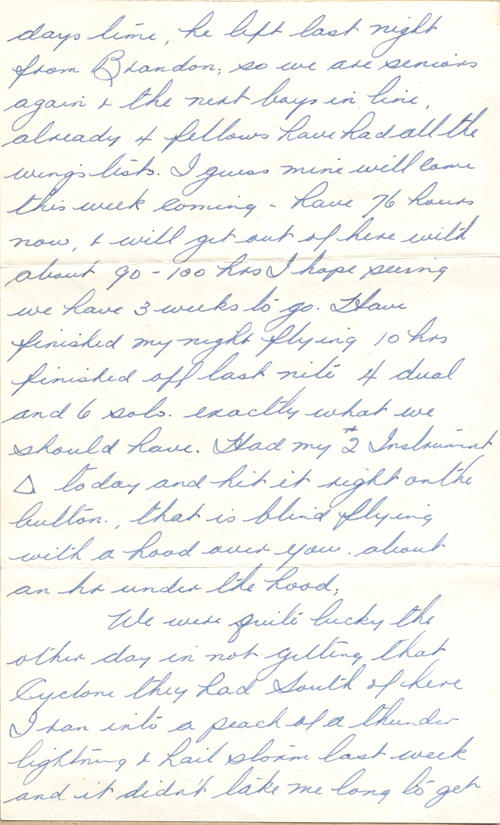 days time, he left last night
from Brandon, so we are seniors
again & the next boys in line,
already 4 fellows have had all the
wings lists. I guess mine will come
this week coming - have 76 hours
now, & will get out of here with
about 90-100 hrs I hope, seeing
we have 3 weeks to go. Have
finished my night flying 10 hrs
finished off last nite 4 dual
and 6 solo. exactly what we
should have. Had my #2 Instrument
△ today and hit it right on the
button., that is blind flying
with a hood over you. about
an hr under the hood,
We were quite lucky the
other day in not getting that
Cyclone they had South of here
I ran into a peach of a thunder
lightning & hail storm last week
and it didn't take me long to get